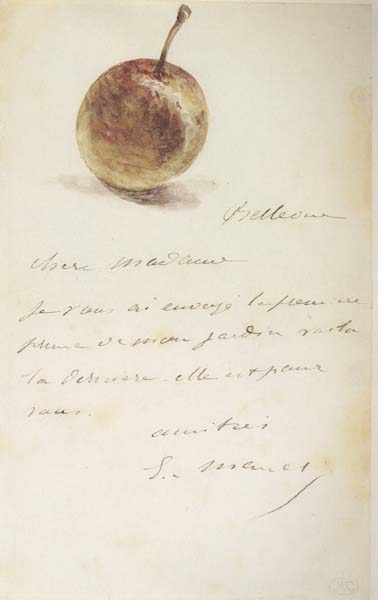 Bellevue
chere madame
je vous ai envoyé la premiere
prune de mon jardin voila
la derniere. elle est pour
vous.
amitiés
E. Manet